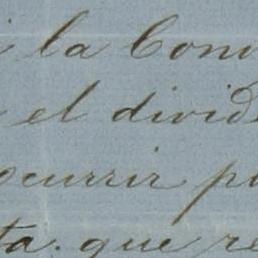 i la Com
el divid
ocurrir p
ta. que re